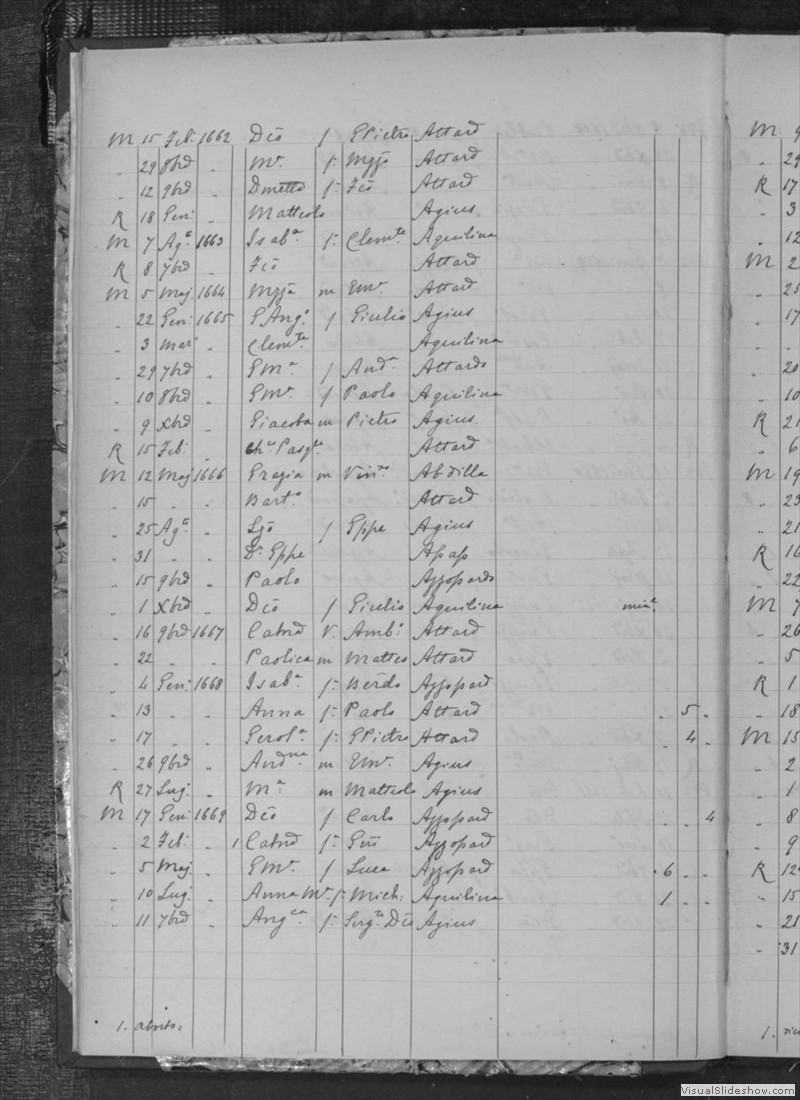 M 15 Feb: 1662 Dco f GPietro Attard
" 29 8brd " Mr f: Mzza Attard
" 12 9brd " Dmetto f: Fco Attard
R 18 Gen: " Matteolo Agius
M 7 Ago 1663 Isaba f: Clemte Aquilina
R 8 7brd " Fco Attard
M 5 Maj 1664 Mzza m Emr Attard
" 22 Gen: 1665 GAngo f Giulio Agius
" 3 Mar " Clemte Aquilina
" 29 7brd " Gma f Anda Attardo
" 10 8brd " Gmr f Paolo Aquilina
" 9 Xbrd " Giacoba m Pietro Agius.
R 15 Feb: " Attard
M 12 Maj 1666 Grazia m Vinzo Abdilla
" 15 " " Barto Attard
" 25 Ago " f Eppe Agius
" 31 " " Dr Eppe Apap
" 15 9brd " Paolo Azzopardo
" 1 Xbrd " Dco f Giulio Aquilina
" 16 9brd 1667 Catnd V. Ambi Attard
" 22 " " Paolica m Matteo Attard
" 4 Gen: 1668 Isaba f: Berdo Azzopard
" 13 " " Anna f: Paolo Attard " 5 "
" 17 " " Gerola f: GPietro Attard " 4 "
" 26 9brd " Andna m Emr Agius
R 27 Lug: " Ma m Matteolo Agius
M 17 Gen: 1669 Dco f Carlo Azzopard " " 4
" 2 Feb: " 1 Catnd f: Gio Azzopard
" 5 Maj " Gmr f Luca Azzopard " 6 " "
" 10 Lug: " Anna Mr f: Mich: Aquilina 1 " "
" 11 7brd " Angca f: Sergte Dco Agius
1. aborto =
M 9
" 29
R 17
" 3
" 12
M 2
" 25
" 17
" "
" 20
" 10
R 21
" 6
M 19
" 23
" 21
R 16
" 22
M 7
" 26
" 5
R 1
" 18
M 15
" 2
" 1
" 8
" 9
R 12
" 15
" 21
" 31
1.
VisualSlideshow.com